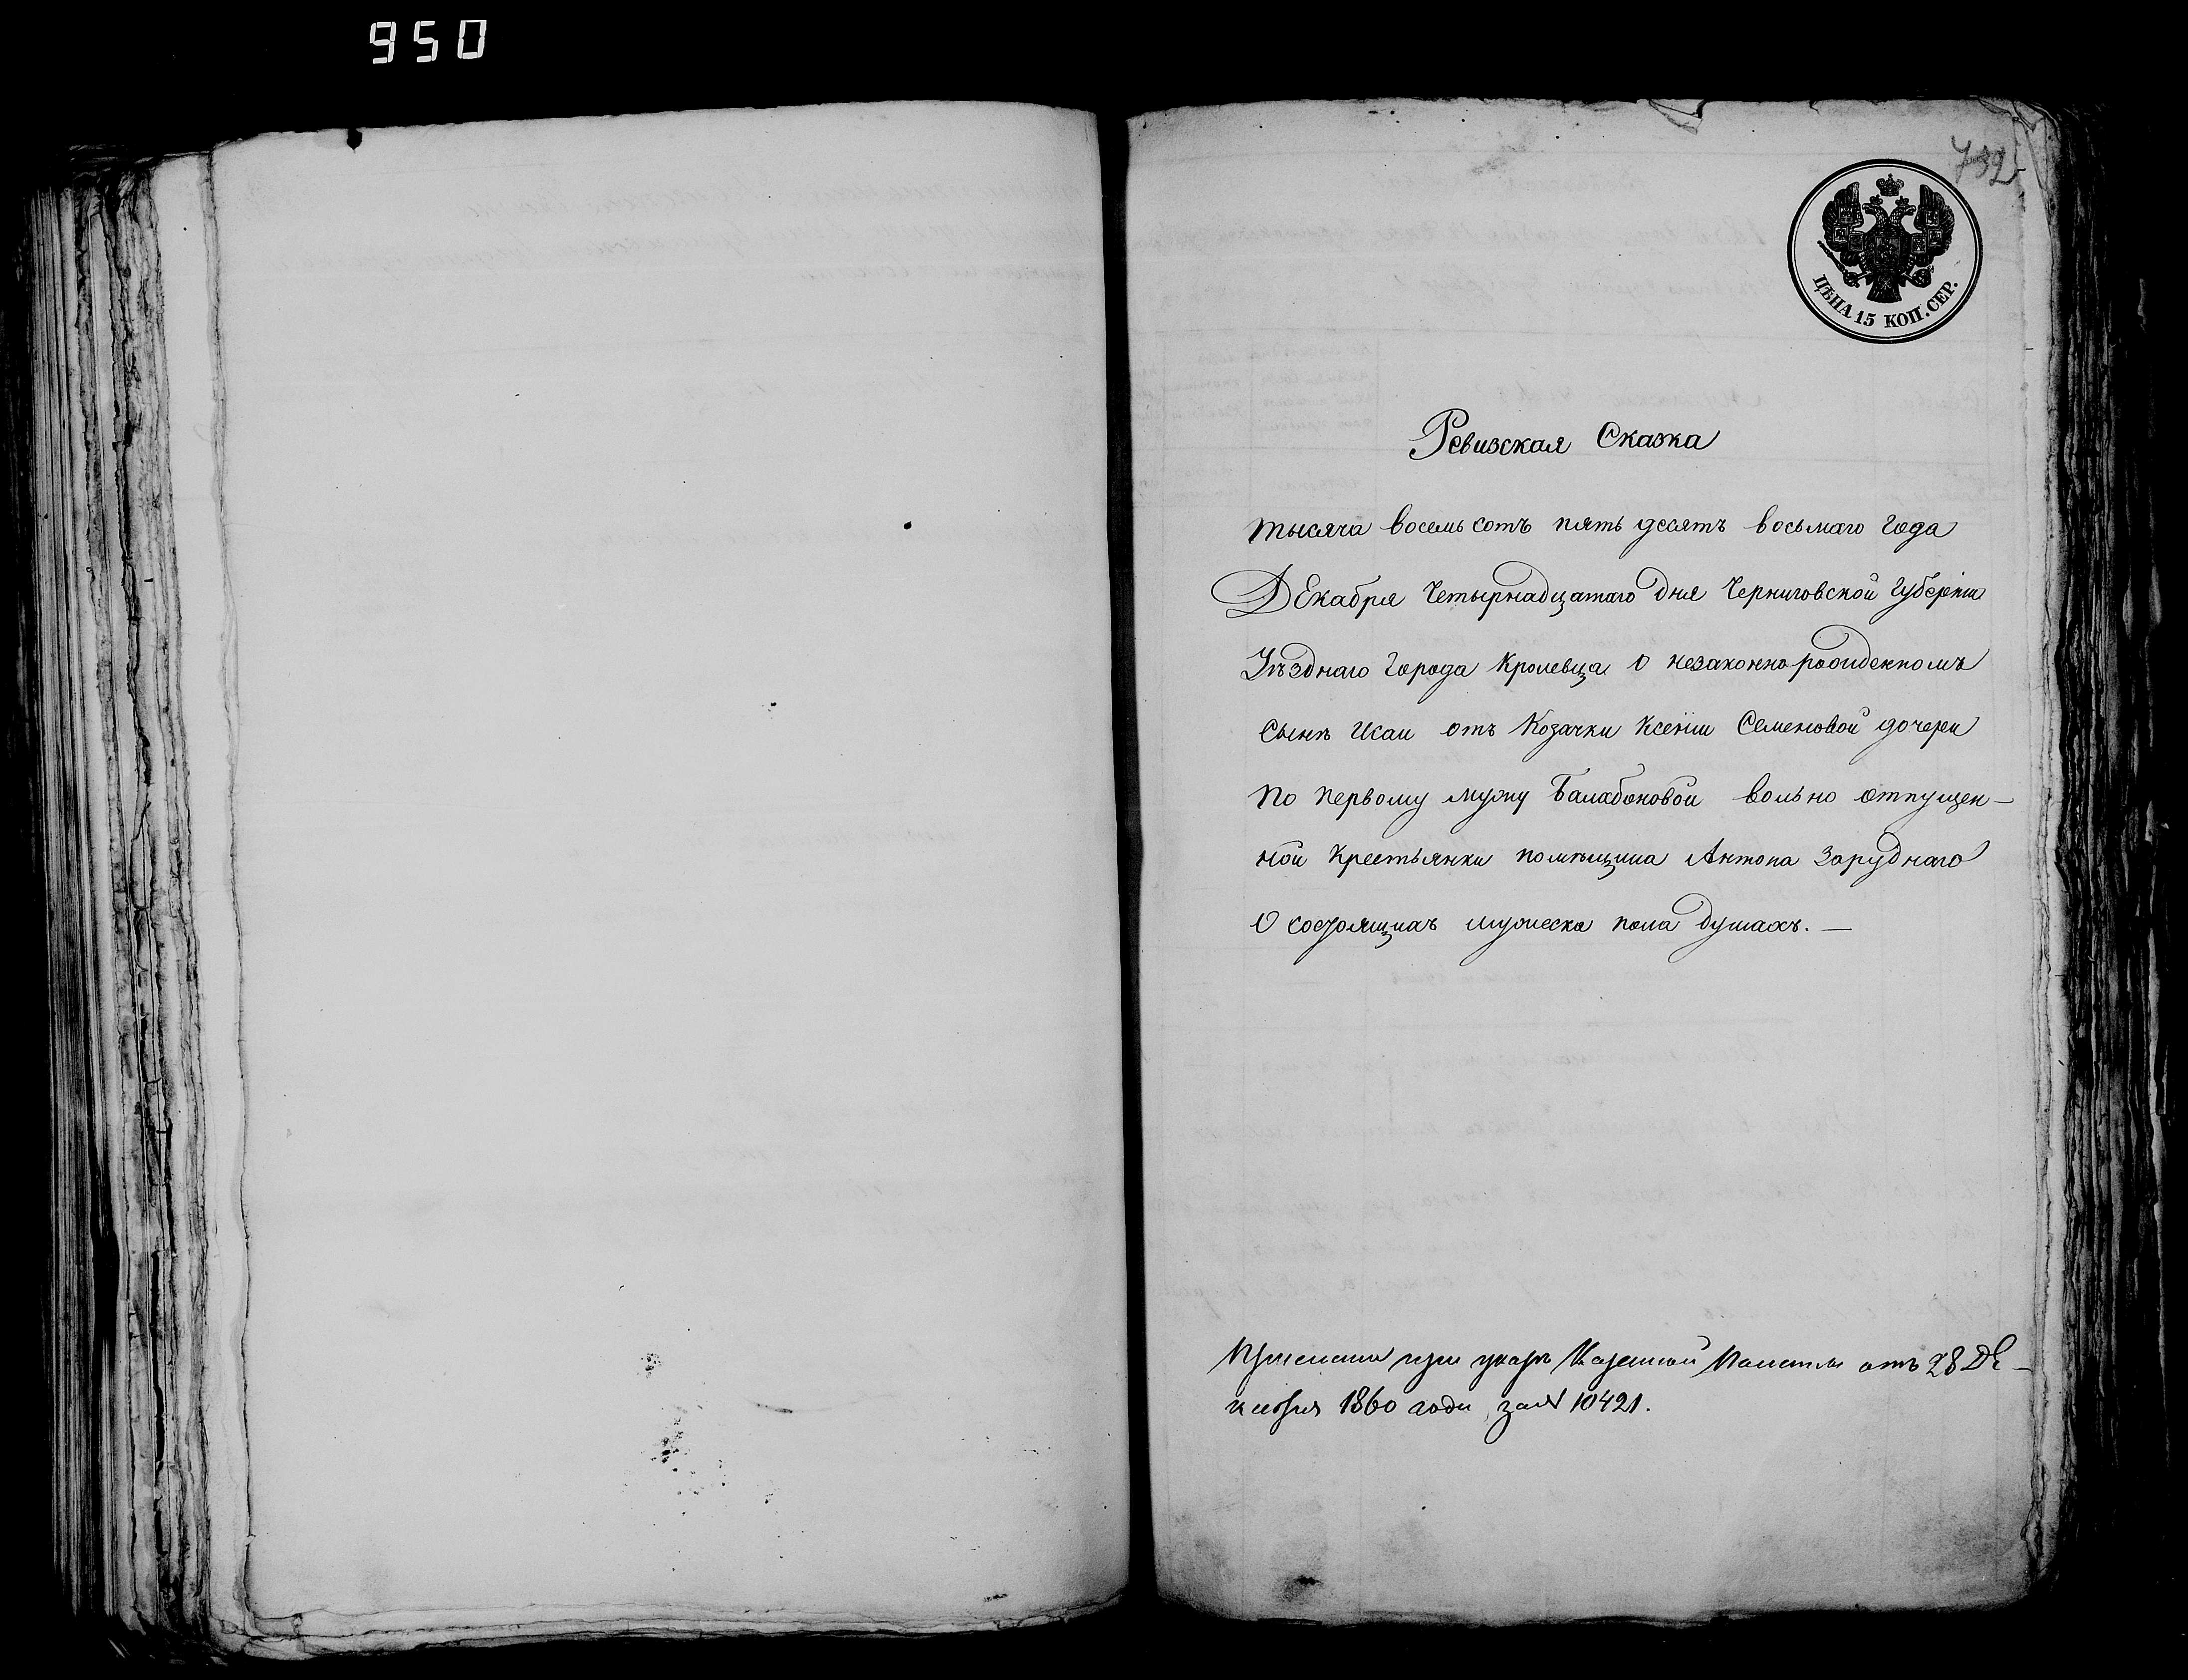 950
732
ЦѢНА 15 КОП. СЕР.
Ревизская Сказка
тысяча восемь сотъ пять десятъ восьмаго года
Декабря Четырнадцатаго дня Черниговской Губерніи
Уѣзднаго Города Кролевца о незаконно рожденномъ
сынѣ Исаи отъ Козачки Ксеніи Семеновой дочери
по первому мужу Балабоновой вольно отпущен-
ной крестьянки помѣщика Антона Заруднаго
О состоящихъ мужеска пола душахъ. —
Прислана при указѣ Казенной Палаты отъ 28 Де-
кабря 1860 года за № 10421.